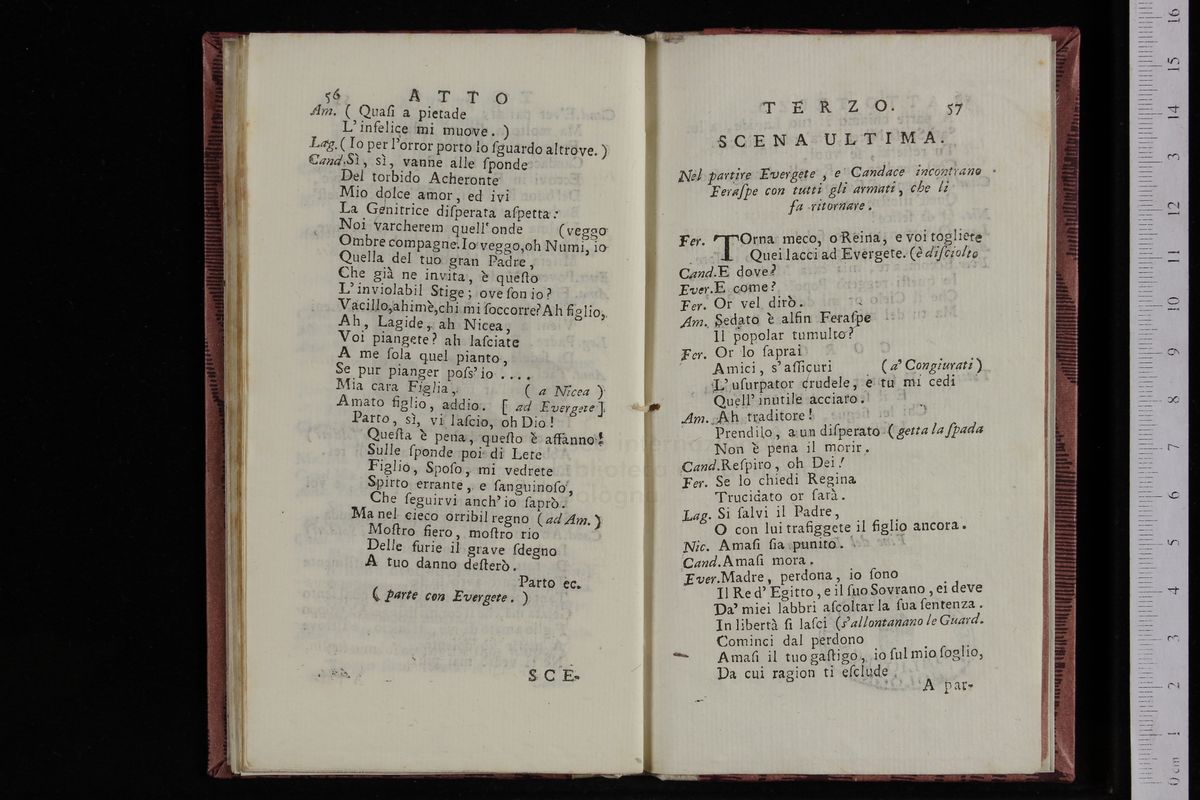 56 ATTO
Am. ( Quaſi a pietade
L'infelice mi muove. )
Lag. ( Io per l'orror porto lo ſguardo altrove. )
Cand. Sì, sì, vanne alle ſponde
Del torbido Acheronte
Mio dolce amor, ed ivi
La Genitrice diſperata aſpetta:
Noi varcherem quell'onde (veggo
Ombre compagne. Io veggo, oh Numi, io
Quella del tuo gran Padre,
Che già ne invita, è queſto
L'inviolabil Stige; ove ſon io?
Vacillo, ahimè, chi mi ſoccorre? Ah figlio,
Ah, Lagide, ah Nicea,
Voi piangete? ah laſciate
A me ſola quel pianto,
Se pur pianger poſs'io ....
Mia cara Figlia, ( a Nicea )
Amato figlio, addio. [ ad Evergete ]
Parto, sì, vi laſcio, oh Dio!
Queſta è pena, queſto è affanno!
Sulle ſponde poi di Lete
Figlio, Spoſo, mi vedrete
Spirto errante, e ſanguinoſo,
Che ſeguirvi anch'io ſaprò.
Ma nel cieco orribil regno ( ad Am. )
Moſtro fiero, moſtro rio
Delle furie il grave ſdegno
A tuo danno deſterò.
Parto ec.
( parte con Evergete. )
SCE-
TERZO. 57
SCENA ULTIMA.
Nel partire Evergete, e Candace incontrano
Feraſpe con tutti gli armati, che li
fa ritornare.
Fer. TOrna meco, o Reina, e voi togliete
Quei lacci ad Evergete. (è diſciolto
Cand. E dove?
Ever. E come?
Fer. Or vel dirò.
Am. Sedato è alfin Feraſpe
Il popolar tumulto?
Fer. Or lo ſaprai
Amici, s'aſſicuri ( a' Congiurati )
L'uſurpator crudele, e tu mi cedi
Quell'inutile acciaro.
Am. Ah traditore!
Prendilo, a un diſperato ( getta la ſpada
Non è pena il morir.
Cand. Reſpiro, oh Dei!
Fer. Se lo chiedi Regina
Trucidato or ſarà.
Lag. Si ſalvi il Padre,
O con lui trafiggete il figlio ancora.
Nic. Amaſi ſia punito.
Cand. Amaſi mora.
Ever. Madre, perdona, io ſono
Il Re d'Egitto, e il ſuo Sovrano, ei deve
Da' miei labbri aſcoltar la ſua ſentenza.
In libertà ſi laſci (s'allontanano le Guard.
Cominci dal perdono
Amaſi il tuo gaſtigo, io ſul mio ſoglio,
Da cui ragion ti eſclude
A par-